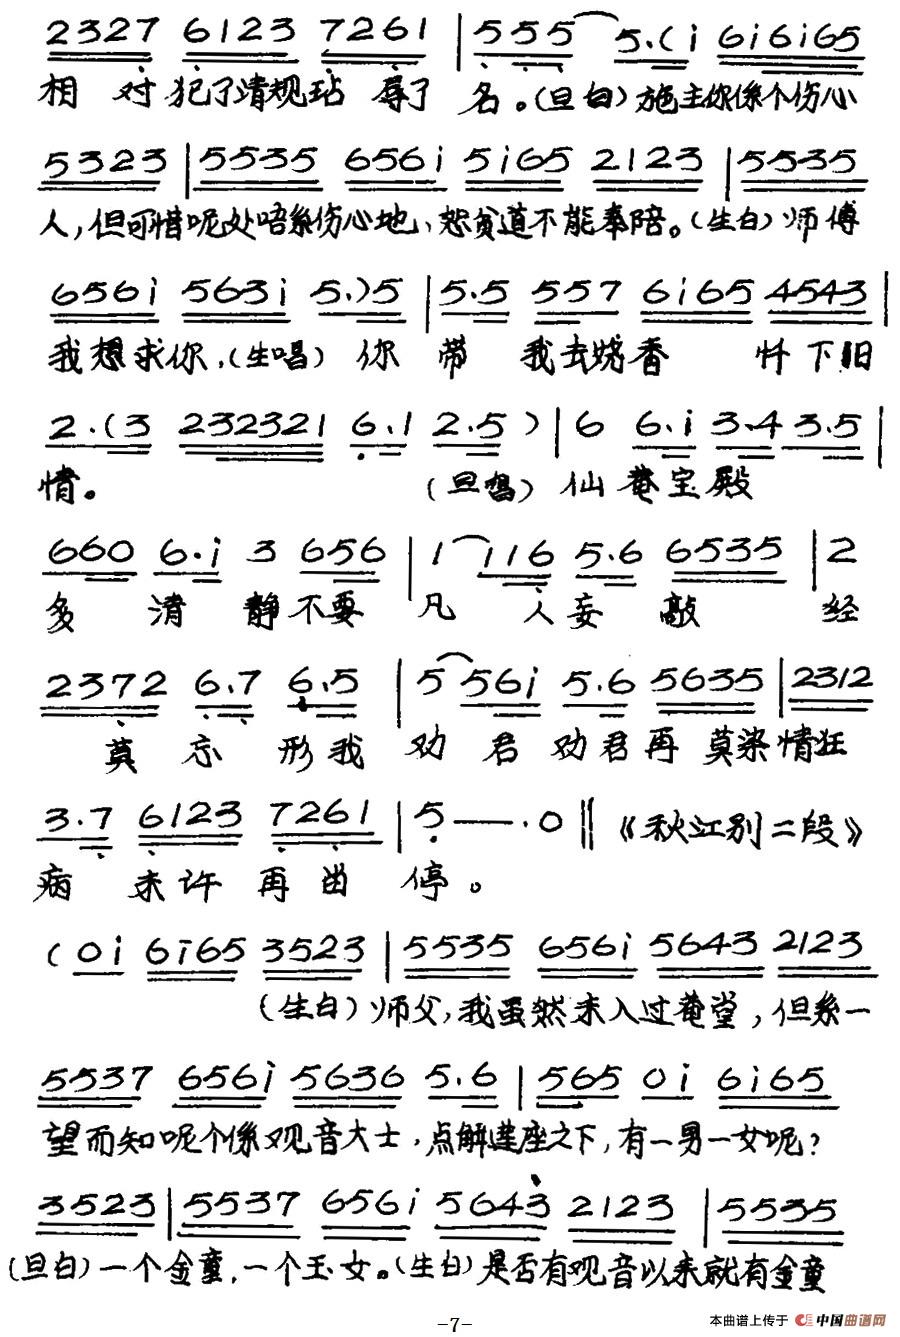 2327 6123 7261 | 555 5.(i 6i6i65
相对犯了清规玷辱了名。(旦白)施主你係个伤心
5323 | 5535 656i 5i65 2123 | 5535
人,但可惜呢处唔系伤心地、恕贫道不能奉陪。(生白)师傅
656i 563i 5.)5 | 5.5 557 6i65 4543 |
我想求你,(生唱)你带我去烧香忏下旧
2.(3 232321 6.1 2.5 ) | 6 6.i 3.4 3.5 |
情。(旦唱)仙菴宝殿
660 6.i 3 656 | 1 116 5.6 6535 | 2
多清静不要凡人妄敲经
2372 6.7 6.5 | 5 56i 5.6 5635 | 2312
莫忘形我劝君劝君再莫染情狂
3.7 6123 7261 | 5 —— . 0 ‖ 《秋江别二段》
病未许再曲停。
( 0i 6i65 3523 | 5535 656i 5643 2123
(生白)师父,我虽然未入过菴堂,但系一
5537 656i 5636 5.6 | 565 0i 6i65
望而知呢个係观音大士,点解莲座之下,有一男一女呢?
3523 | 5537 656i 5643 2123 | 5535
(旦白)一个金童,一个玉女。(生白)是否有观音以来就有金童
-7-
本曲谱上传于 中国曲谱网